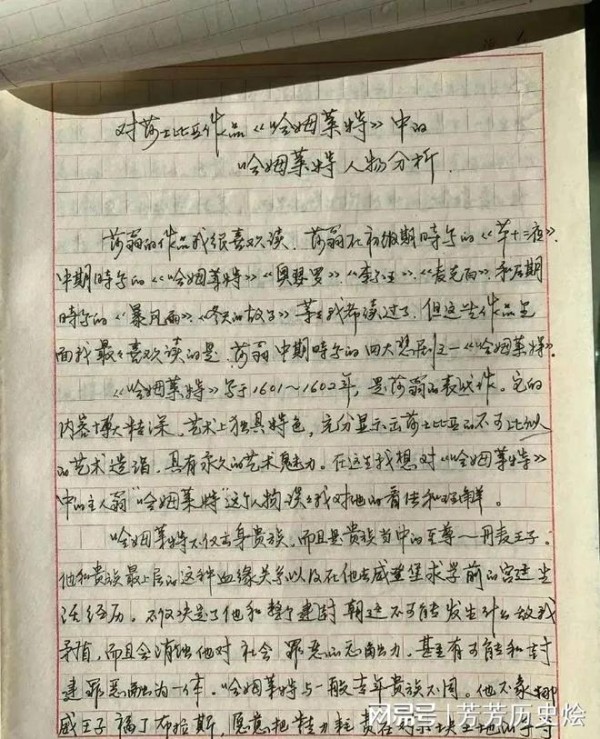 对莎士比亚作品《哈姆莱特》中的
哈姆莱特人物分析.
莎翁的作品我很喜欢读. 莎翁在初级期時写的《第十二夜》.
中期時写的《哈姆莱特》《奥瑟罗》.《李尔王》.《麦克白》.和后期
時写的《暴风雨》.《冬天的故事》等等我都读过了. 但这些作品里
面我最最喜欢读的是. 莎翁中期時写的四大悲剧之一《哈姆莱特》.
《哈姆莱特》写于1601～1602年, 是莎翁的代表作. 它的
内容博大精深. 艺术上独具特色, 充分显示出莎士比亚的不可比拟
的艺术造诣. 具有永久的艺术魅力. 在这里我想对《哈姆莱特》
中的主人翁"哈姆莱特"这个人物谈谈我对他的看法和理解。
哈姆莱特不仅出身贵族. 而且是贵族当中的至尊—丹麦王子.
他和贵族最上层的这种血缘关系以及在他去威登堡求学前的宫廷生
活经历. 不仅决定了他和整个建封朝廷不可能发生什么敌我
矛盾, 而且会消蚀他对社会罪恶的 力. 甚至有可能和封
建罪恶融为一体. 哈姆莱特与一般青年贵族不同. 他不象挪
威王子福丁布拉斯, 愿意把精力耗费在对小块土地的争夺
网易号 | 芳芳历史烩